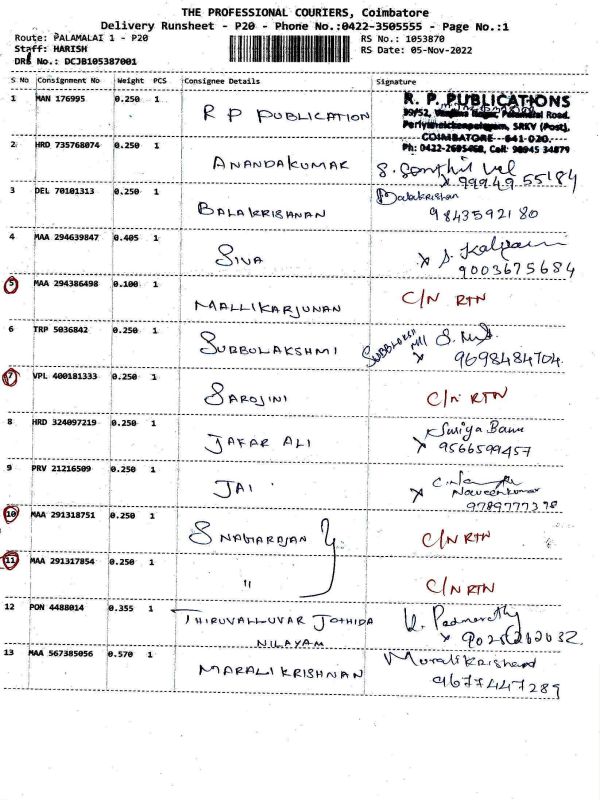 THE PROFESSIONAL COURIERS, Coimbatore
Delivery Runsheet - P20 - Phone No.:0422-3505555 - Page No.:1
Route: PALAMALAI 1 - P20 RS No.: 1053870
Staff: HARISH RS Date: 05-Nov-2022
DRS No.: DCJB105387001
S No Consignment No Weight PCS Consignee Details Signature
1 MAN 176995 0.250 1 R P PUBLICATION R. P. PUBLICATIONS
39/52, Nagar, Palamalai Road.
Periyanaickenpalayam, SRKV (Post).
COIMBATORE - 641-020.
Ph: 0422-2605468, Cell: 98945 34879
2 HRD 735768074 0.250 1 ANANDAKUMAR S. Senthil Vel
x 99949 55184
3 DEL 70101313 0.250 1 BALAKRISHNAN Balakrishnan
9843592180
4 MAA 294639847 0.405 1 SIVA x S. Kalpana
9003675684
5 MAA 294386498 0.100 1 MALLIKARJUNAN C/N RTN
6 TRP 5036842 0.250 1 SUBBULAKSHMI
x 9698484704.
7 VPL 400181333 0.250 1 SAROJINI C/N RTN
8 HRD 324097219 0.250 1 JAFAR ALI x Suriya Banu
9566599457
9 PRV 21216509 0.250 1 JAI x
Naveenkumar
9789777378
10 MAA 291318751 0.250 1 S NATARAJAN C/N RTN
11 MAA 291317854 0.250 1 " C/N RTN
12 PON 4488014 0.355 1 THIRUVALLUVAR JOTHIDA
NILAYAM
13 MAA 567385056 0.570 1 MARALI KRISHNAN Muralikrishnan
9677447289